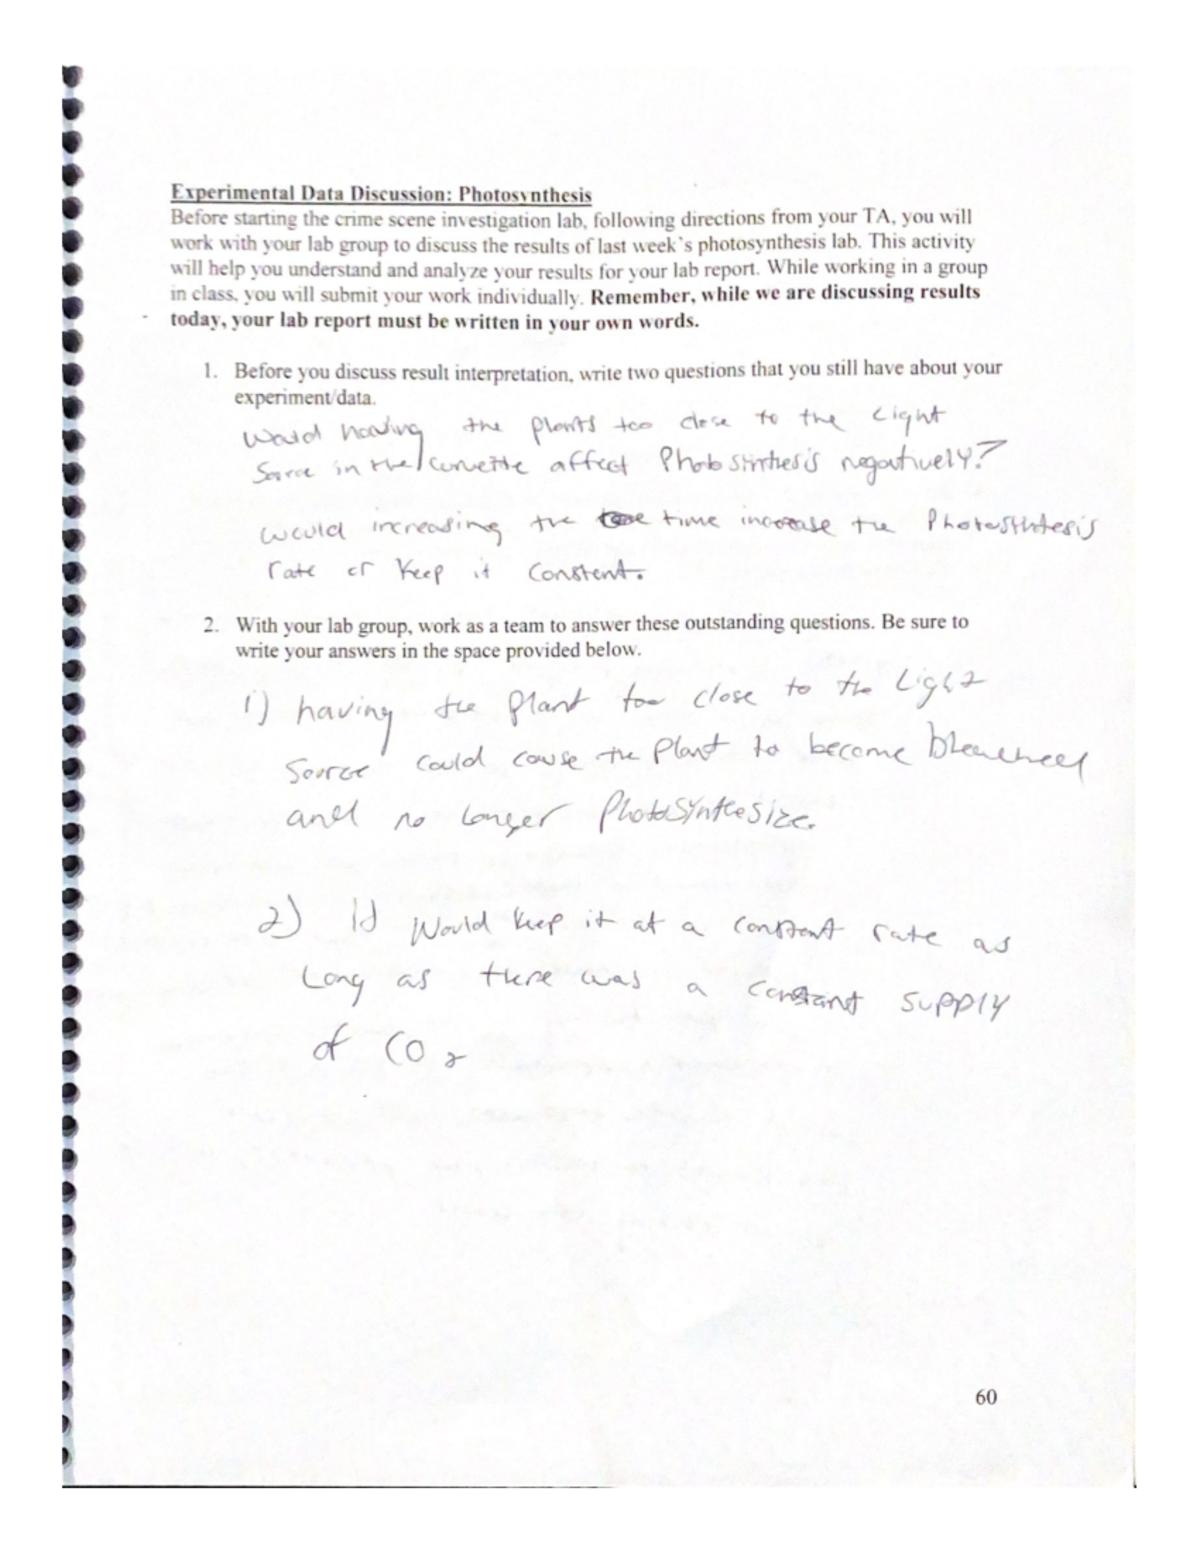 Experimental Data Discussion: Photosynthesis
Before starting the crime scene investigation lab, following directions from your TA, you will
work with your lab group to discuss the results of last week's photosynthesis lab. This activity
will help you understand and analyze your results for your lab report. While working in a group
in class, you will submit your work individually. Remember, while we are discussing results
today, your lab report must be written in your own words.
1. Before you discuss result interpretation, write two questions that you still have about your
experiment/data.
Would having the plants too close to the Light
Source in the cuvette affect Photosinthesis negatively?
would increasing the time increase the Photosthtesis
rate or Keep it Constent.
2. With your lab group, work as a team to answer these outstanding questions. Be sure to
write your answers in the space provided below.
1) having the plant too close to the Light
Source could cause the Plant to become bleached
and no longer Photosynthesize.
2) It Would keep it at a constant rate as
Long as there was a constant supply
of CO2
60